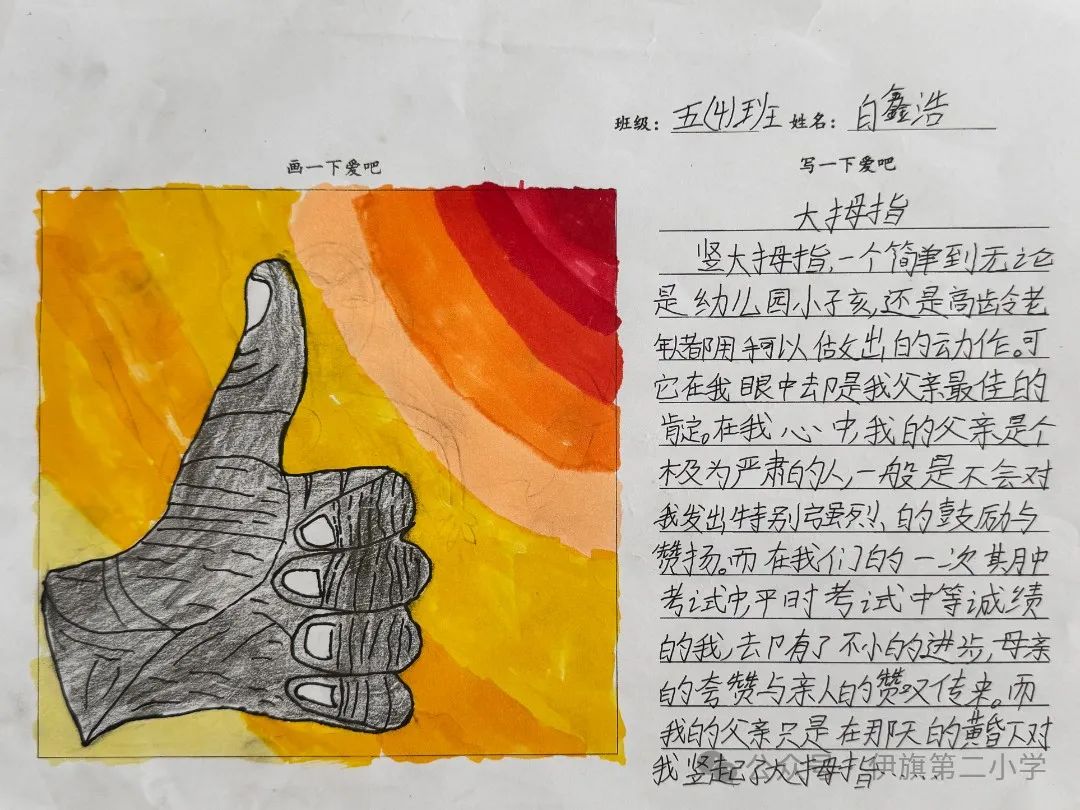 班级：五(4)班 姓名：白鑫浩
画一下爱吧
写一下爱吧
大拇指
竖大拇指，一个简单到无论
是幼儿园小子亥，还是高龄老
年都用可以做出的动作。可
它在我眼中却是我父亲最佳的
肯定。在我心中，我的父亲是个
极为严肃的人，一般是不会对
我发出特别强烈、的鼓励与
赞扬。而在我们的一次其月中
考试中，平时考试中等诚绩
的我，去卩有了不小的进步，母亲
的夸赞与亲人的赞叹传来。而
我的父亲只是在那天的黄昏下对
我竖起了大拇指……
公众号 伊旗第二小学